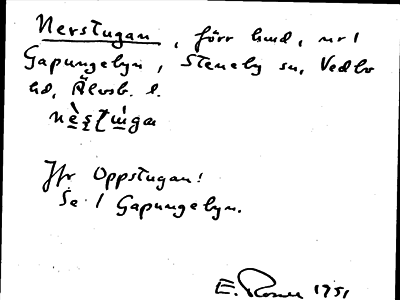 Nerstugan, förr hmd, nr 1
Gapungebyn, Steneby sn, Vedbo
hd, Älvsb. l.
Jfr Oppstugan!
Se 1 Gapungebyn.
E. Rosén 1951